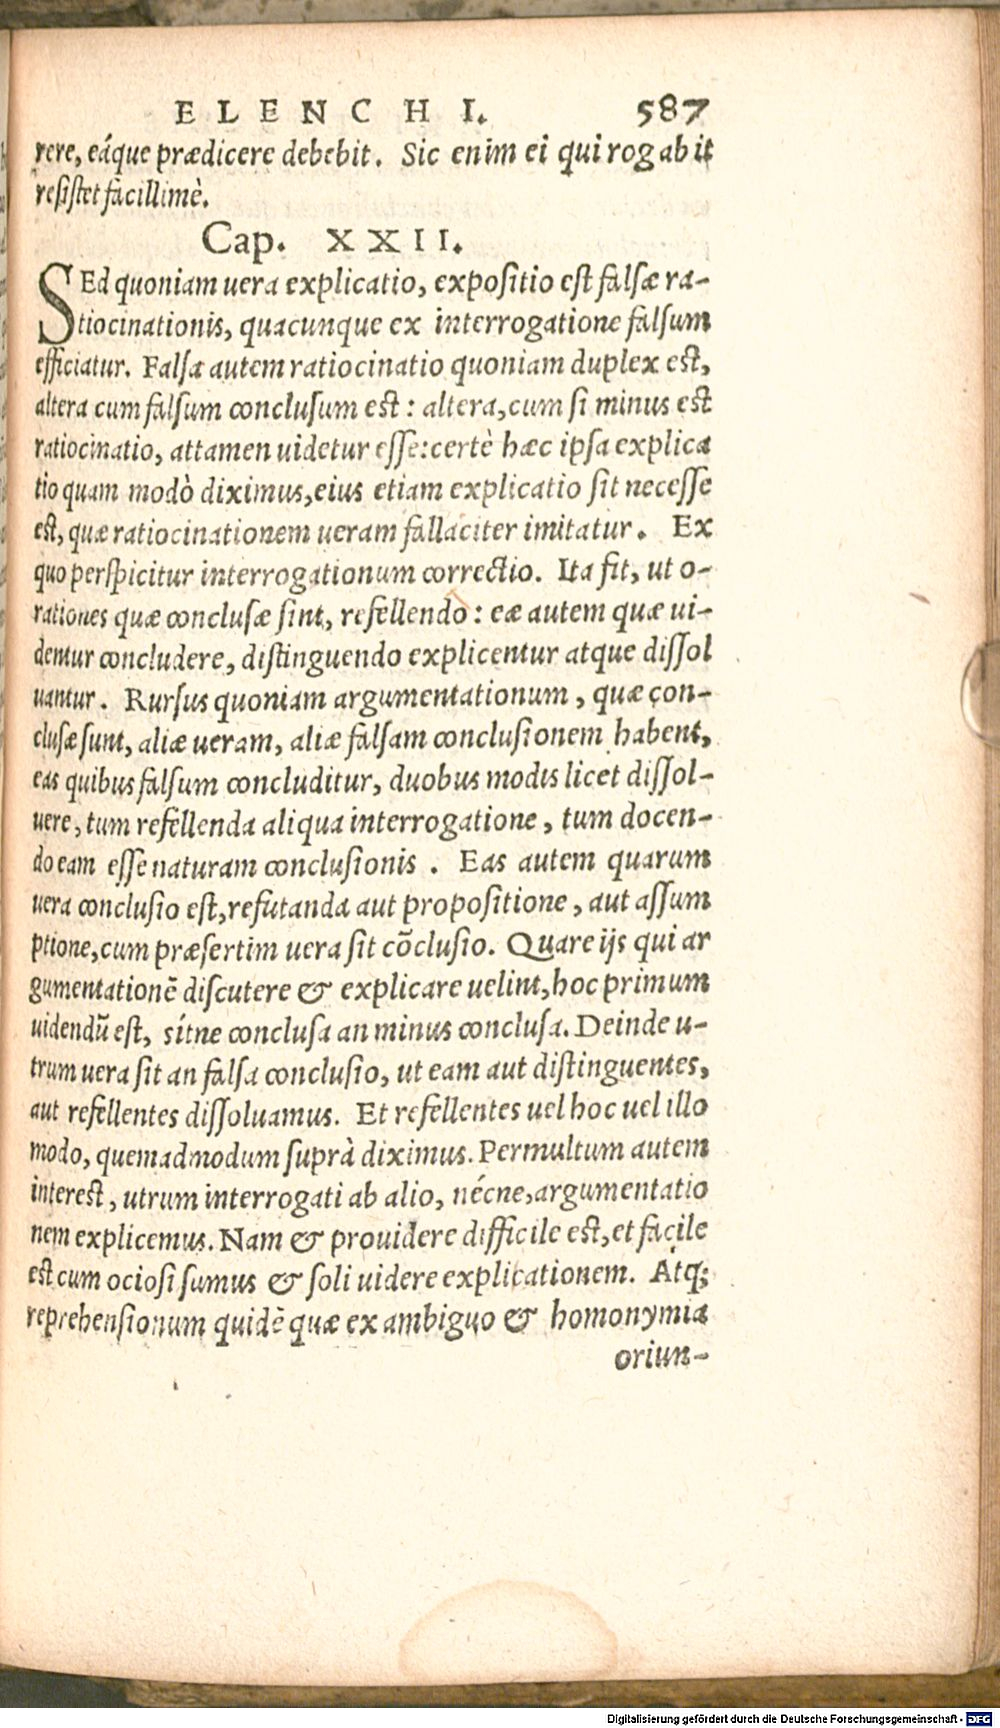 ELENCHI. 587
rere, eáque prædicere debebit. Sic enim ei qui rogabit
resistet facillimè.
Cap. XXII.
SEd quoniam uera explicatio, expositio est falsæ ra-
tiocinationis, quacunque ex interrogatione falsum
efficiatur. Falsa autem ratiocinatio quoniam duplex est,
altera cum falsum conclusum est: altera, cum si minus est
ratiocinatio, attamen uidetur esse: certè hæc ipsa explica
tio quam modò diximus, eius etiam explicatio sit necesse
est, quæ ratiocinationem ueram fallaciter imitatur. Ex
quo perspicitur interrogationum correctio. Ita fit, ut o-
rationes quæ conclusæ sint, refellendo: eæ autem quæ ui-
dentur concludere, distinguendo explicentur atque dissol
uantur. Rursus quoniam argumentationum, quæ con-
clusæ sunt, aliæ ueram, aliæ falsam conclusionem habent,
eas quibus falsum concluditur, duobus modis licet dissol-
uere, tum refellenda aliqua interrogatione, tum docen-
do eam esse naturam conclusionis. Eas autem quarum
uera conclusio est, refutanda aut propositione, aut assum
ptione, cum præsertim uera sit cõclusio. Quare ijs qui ar
gumentationẽ discutere & explicare uelint, hoc primum
uidendũ est, sítne conclusa an minus conclusa. Deinde u-
trum uera sit an falsa conclusio, ut eam aut distinguentes,
aut refellentes dissoluamus. Et refellentes uel hoc uel illo
modo, quemadmodum suprà diximus. Permultum autem
interest, utrum interrogati ab alio, nécne, argumentatio
nem explicemus. Nam & prouidere difficile est, et facile
est cum ociosi sumus & soli uidere explicationem. Atq;
reprehensionum quidẽ quæ ex ambiguo & homonymia
oriun-
Digitalisierung gefördert durch die Deutsche Forschungsgemeinschaft - DFG